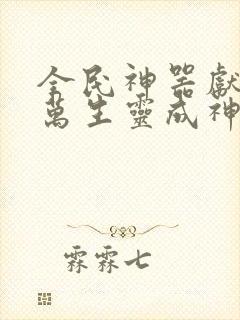 全民神器獻
萬生靈成神
霖霖七